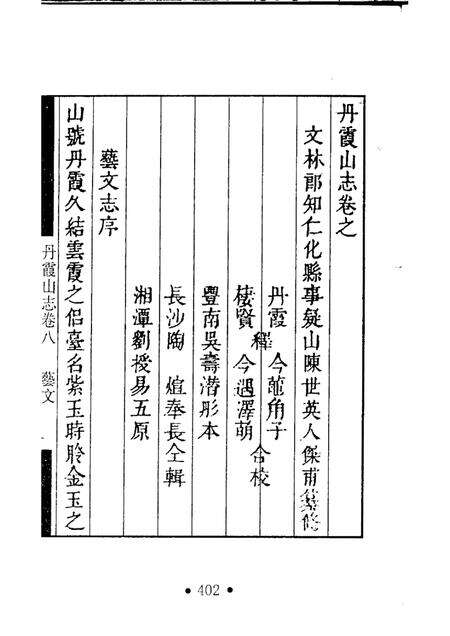 丹霞山志卷之
文林郎知仁化縣事疑山陳世英人傑甫纂修
丹霞 今黿角子
釋
棲賢 今遇澤萌
合校
豐南吳壽潛彤本
長沙陶 煊奉長仝輯
湘潭劉授易五原
藝文志序
山號丹霞久結雲霞之侶臺名紫玉時聆金玉之
丹霞山志卷八 藝文
• 402 •